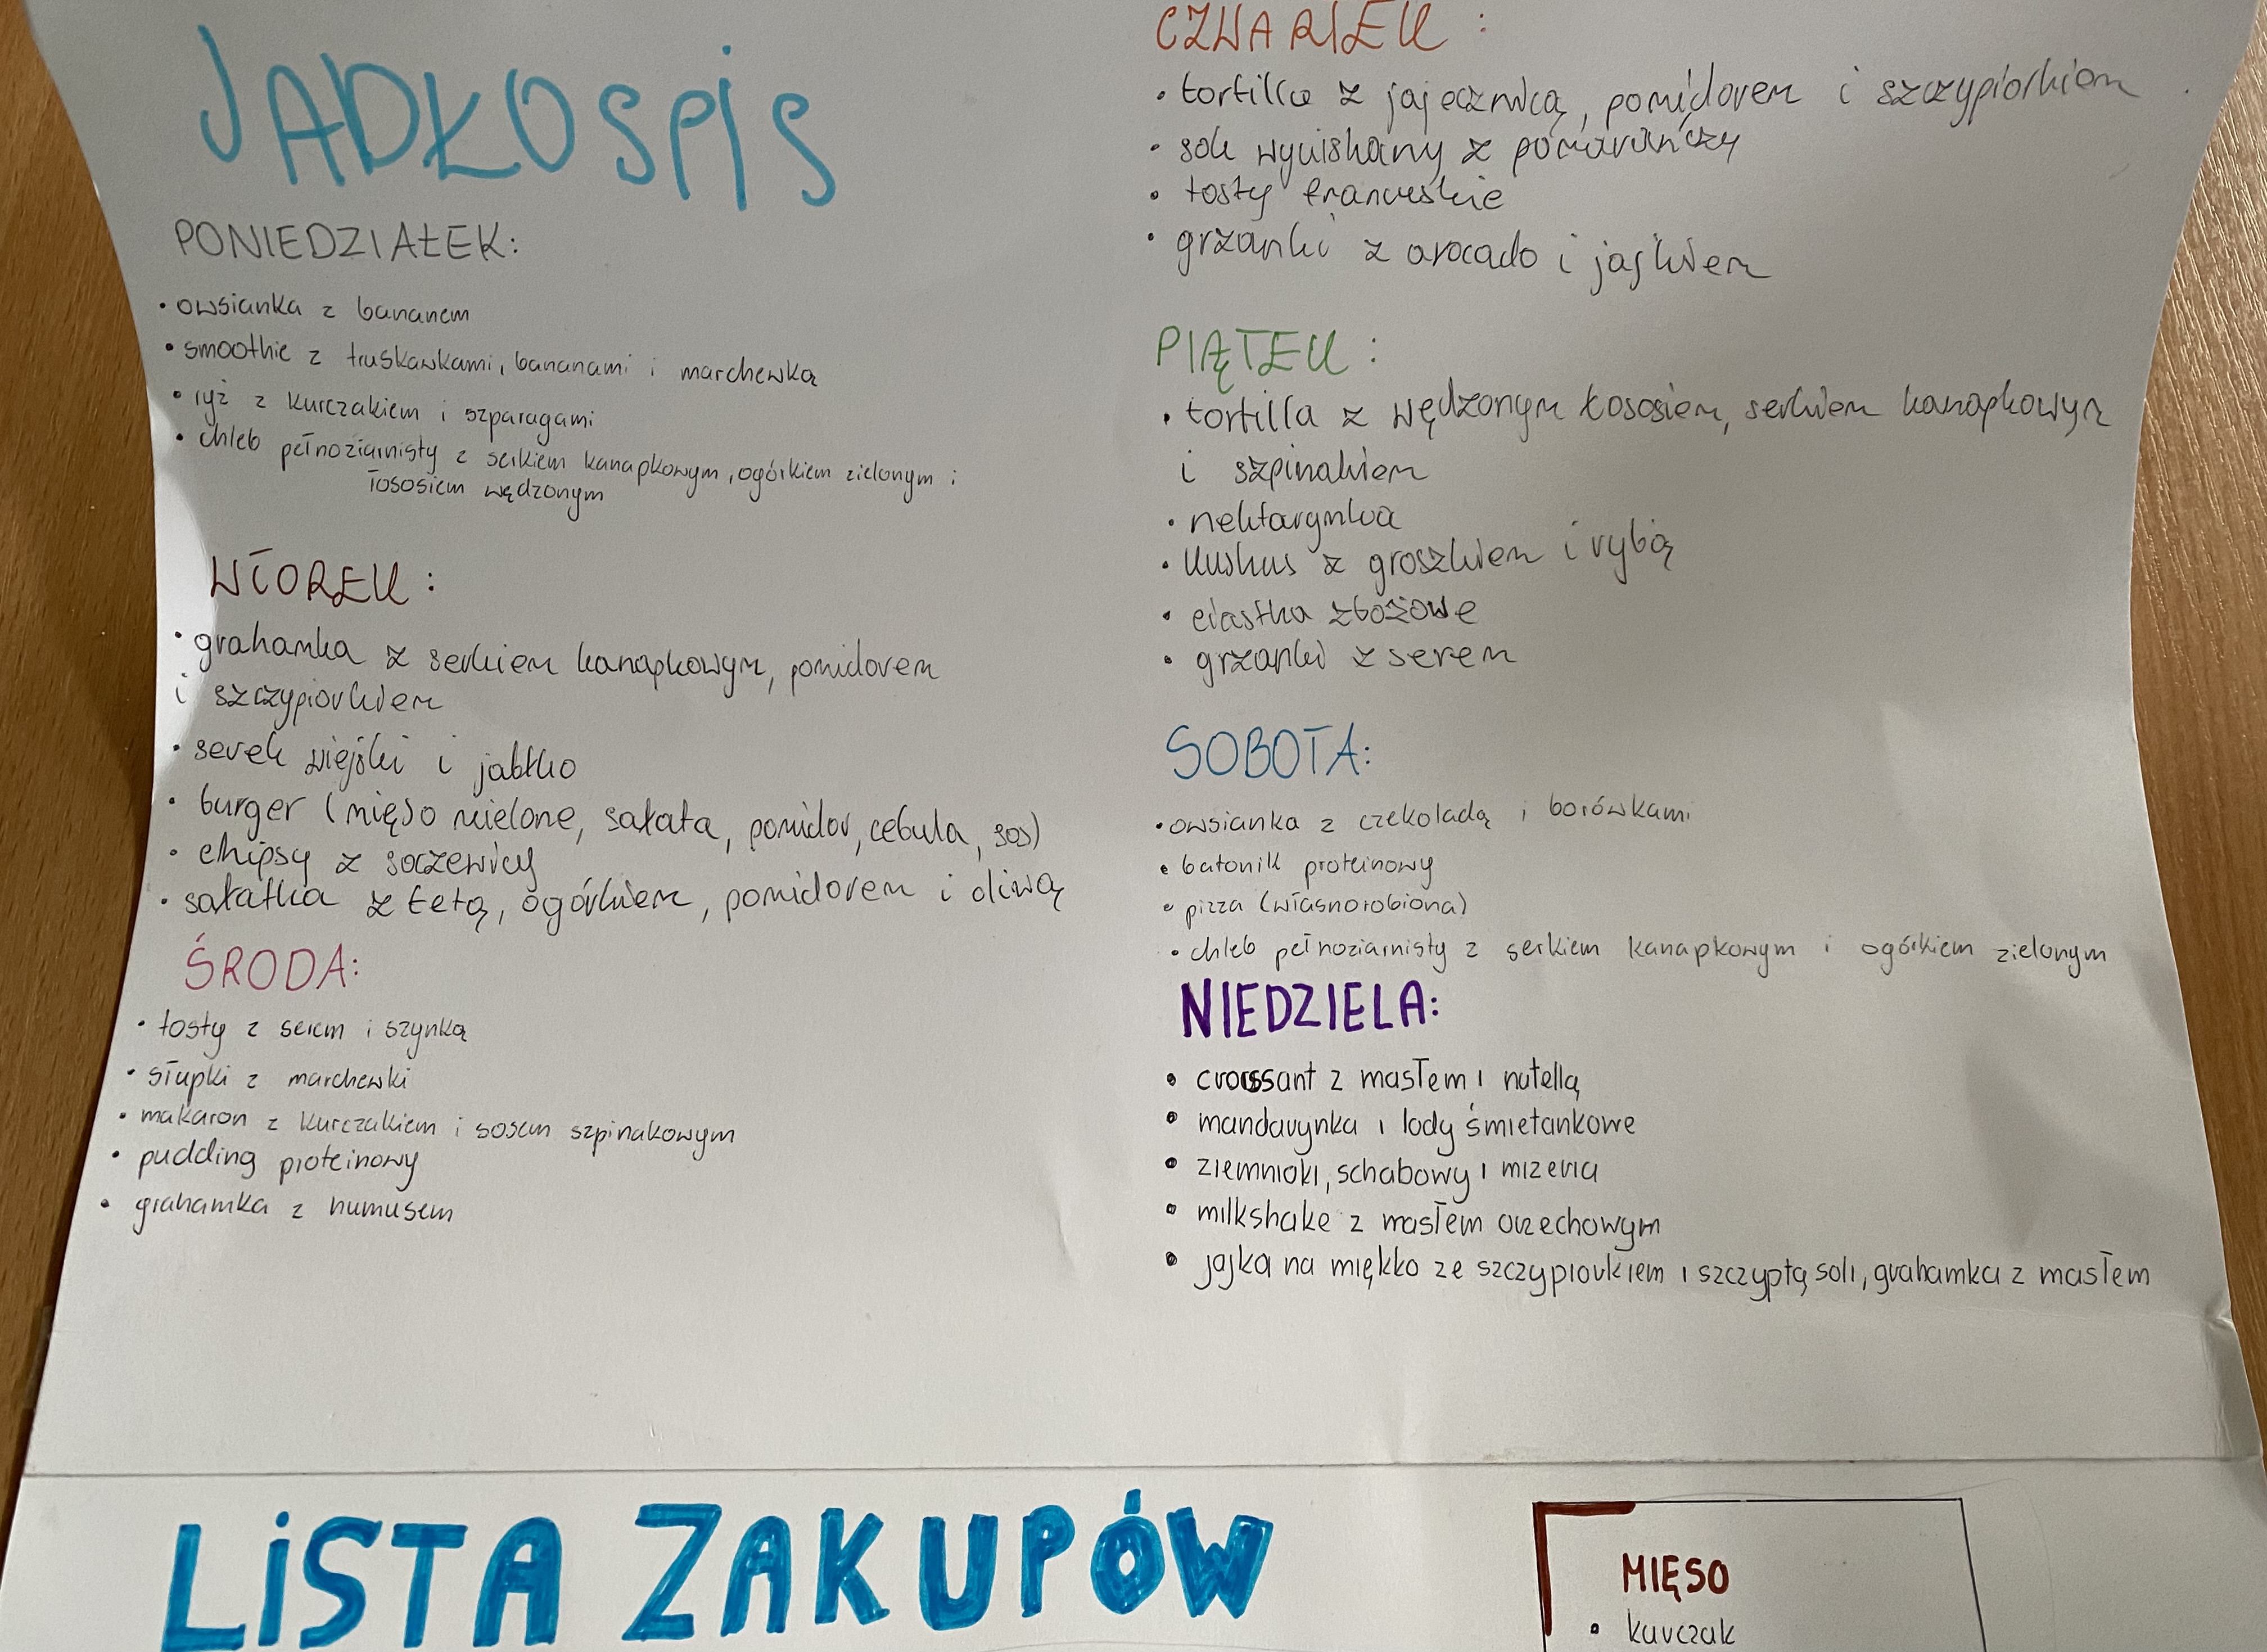 JADŁOSPIS
PONIEDZIAŁEK:
• owsianka z bananem
• smoothie z truskawkami, bananami i marchewką
• ryż z kurczakiem i szparagami
• chleb pełnoziarnisty z serkiem kanapkowym, ogórkiem zielonym i
łososiem wędzonym
WTOREK:
• grahamka z serkiem kanapkowym, pomidorem
i szczypiorkiem
• serek wiejski i jabłko
• burger (mięso mielone, sałata, pomidor, cebula, sos)
• chipsy z soczewicy
• sałatka z fetą, ogórkiem, pomidorem i oliwą
ŚRODA:
• tosty z serem i szynką
• słupki z marchewki
• makaron z kurczakiem i sosem szpinakowym
• pudding proteinowy
• grahamka z humusem
CZWARTEK:
• tortilla z jajecznicą, pomidorem i szczypiorkiem
• sok wyciskany z pomarańczy
• tosty francuskie
• grzanki z avocado i jajkiem
PIĄTEK:
• tortilla z wędzonym łososiem, serkiem kanapkowym
i szpinakiem
• nektarynka
• kuskus z groszkiem i rybą
• ciastka zbożowe
• grzanki z serem
SOBOTA:
• owsianka z czekoladą i borówkami
• batonik proteinowy
• pizza (własnorobiona)
• chleb pełnoziarnisty z serkiem kanapkowym i ogórkiem zielonym
NIEDZIELA:
• croissant z masłem i nutellą
• mandarynka i lody śmietankowe
• ziemniaki, schabowy i mizeria
• milkshake z masłem orzechowym
• jajka na miękko ze szczypiorkiem i szczyptą soli, grahamka z masłem
LISTA ZAKUPÓW
MIĘSO
• kurczak